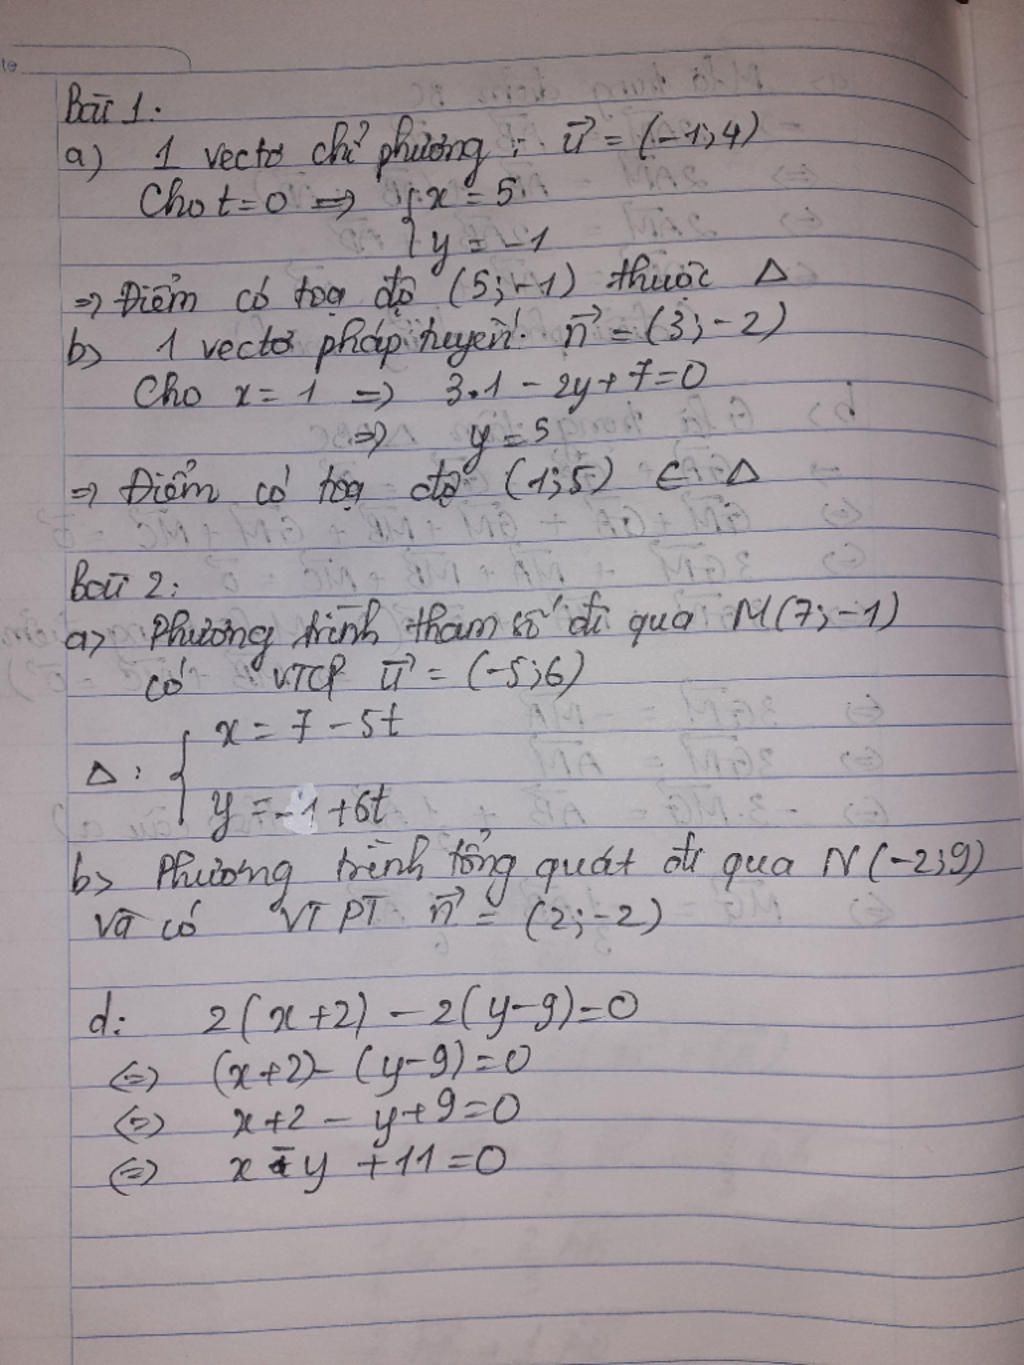 Bài 1:
a) 1 vectơ chỉ phương : u⃗ = (-1;4)
Cho t=0 => { x = 5
{ y = -1
=> Điểm có toạ độ (5;-1) thuộc Δ
b> 1 vectơ pháp tuyến: n⃗ = (3;-2)
Cho x=1 => 3.1 - 2y+7=0
=> y = 5
=> Điểm có toạ độ (1;5) ∈ Δ
Bài 2:
a> Phương trình tham số đi qua M(7;-1)
có VTCP u⃗ = (-5;6)
x = 7 - 5t
Δ: {
y = -1+6t
b> Phương trình tổng quát đi qua N(-2;9)
và có VTPT n⃗ = (2;-2)
d: 2(x+2) - 2(y-9)=0
<=> (x+2)- (y-9)=0
<=> x+2 - y+9=0
<=> x - y +11=0